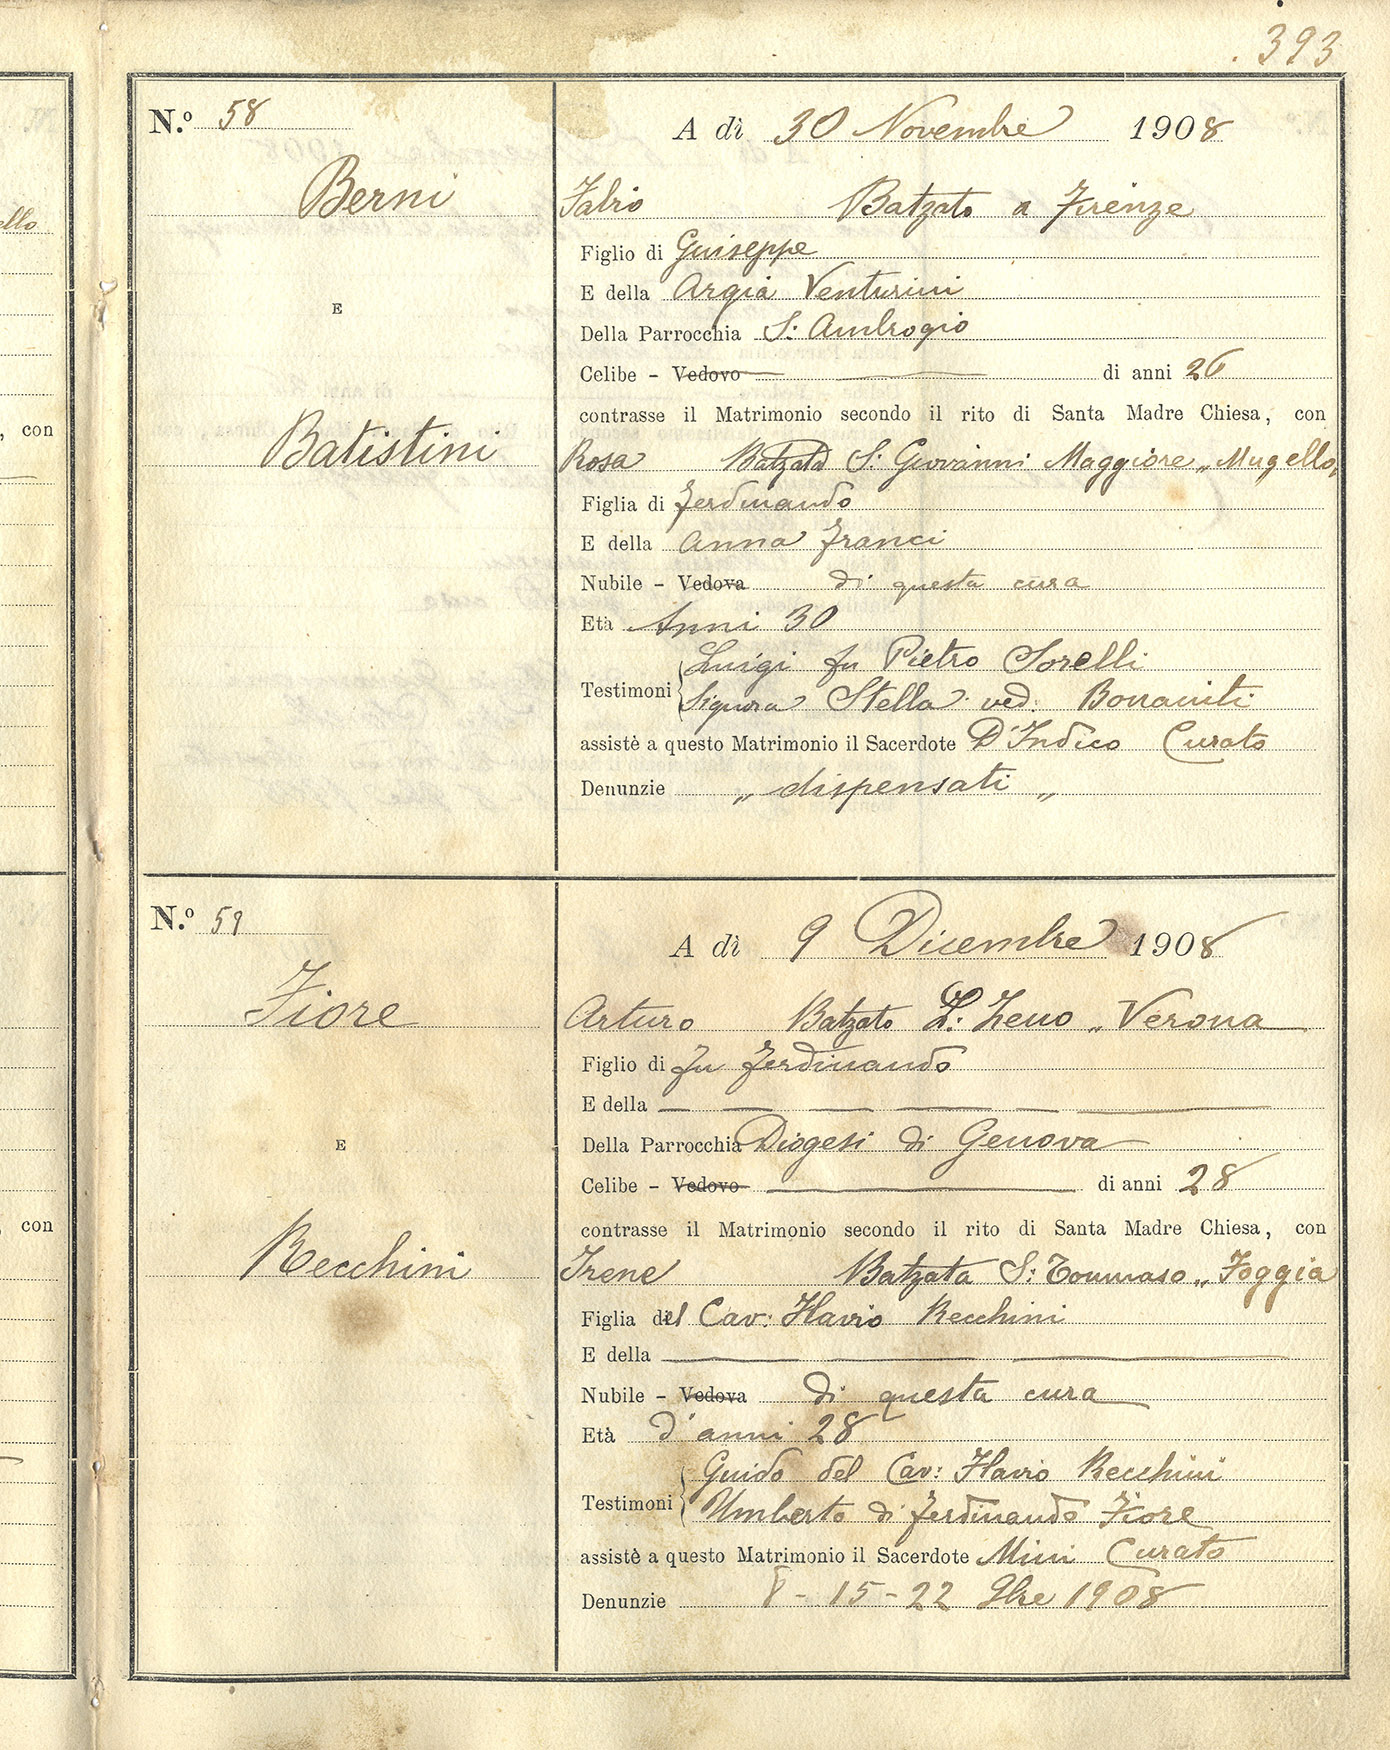 393
N.º 58
A dì 30 Novembre 1908
Berni
Fabio Batzato a Firenze
Figlio di Guiseppe
E
E della Argia Venturini
Della Parrocchia S: Ambrogio
Celibe - Vedovo di anni 26
contrasse il Matrimonio secondo il rito di Santa Madre Chiesa, con
Batistini
Rosa Batzata S: Giovanni Maggiore „Mugello„
Figlia di Ferdinando
E della Anna Franci
Nubile - Vedova di questa cura
Età Anni 30
Testimoni Luigi fu Pietro Sorelli
Signora Stella ved:
assistè a questo Matrimonio il Sacerdote D'Indico Curato
Denunzie „ dispensati „
N.º 59
A dì 9 Dicembre 1908
Fiore
Arturo Batzato Z: Zeno „ Verona
Figlio di Fu Ferdinando
E
E della
Della Parrocchia Diogesi di Genova
Celibe - Vedovo di anni 28
contrasse il Matrimonio secondo il rito di Santa Madre Chiesa, con
Recchini
Irene Batzata S: Tommaso „ Foggia
Figlia del Cav: Flavio Recchini
E della
Nubile - Vedova di questa cura
Età d'anni 28
Testimoni Guido del Cav: Flavio Recchini
Umberto di Ferdinando Fiore
assistè a questo Matrimonio il Sacerdote Mini Curato
Denunzie 8 - 15 - 22 9bre 1908
ello
, con
, con